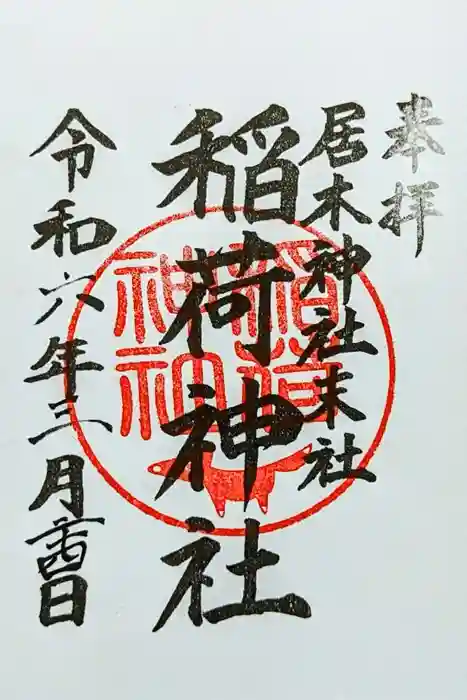 奉拝
居木神社末社
稲荷神社
令和六年三月十四日